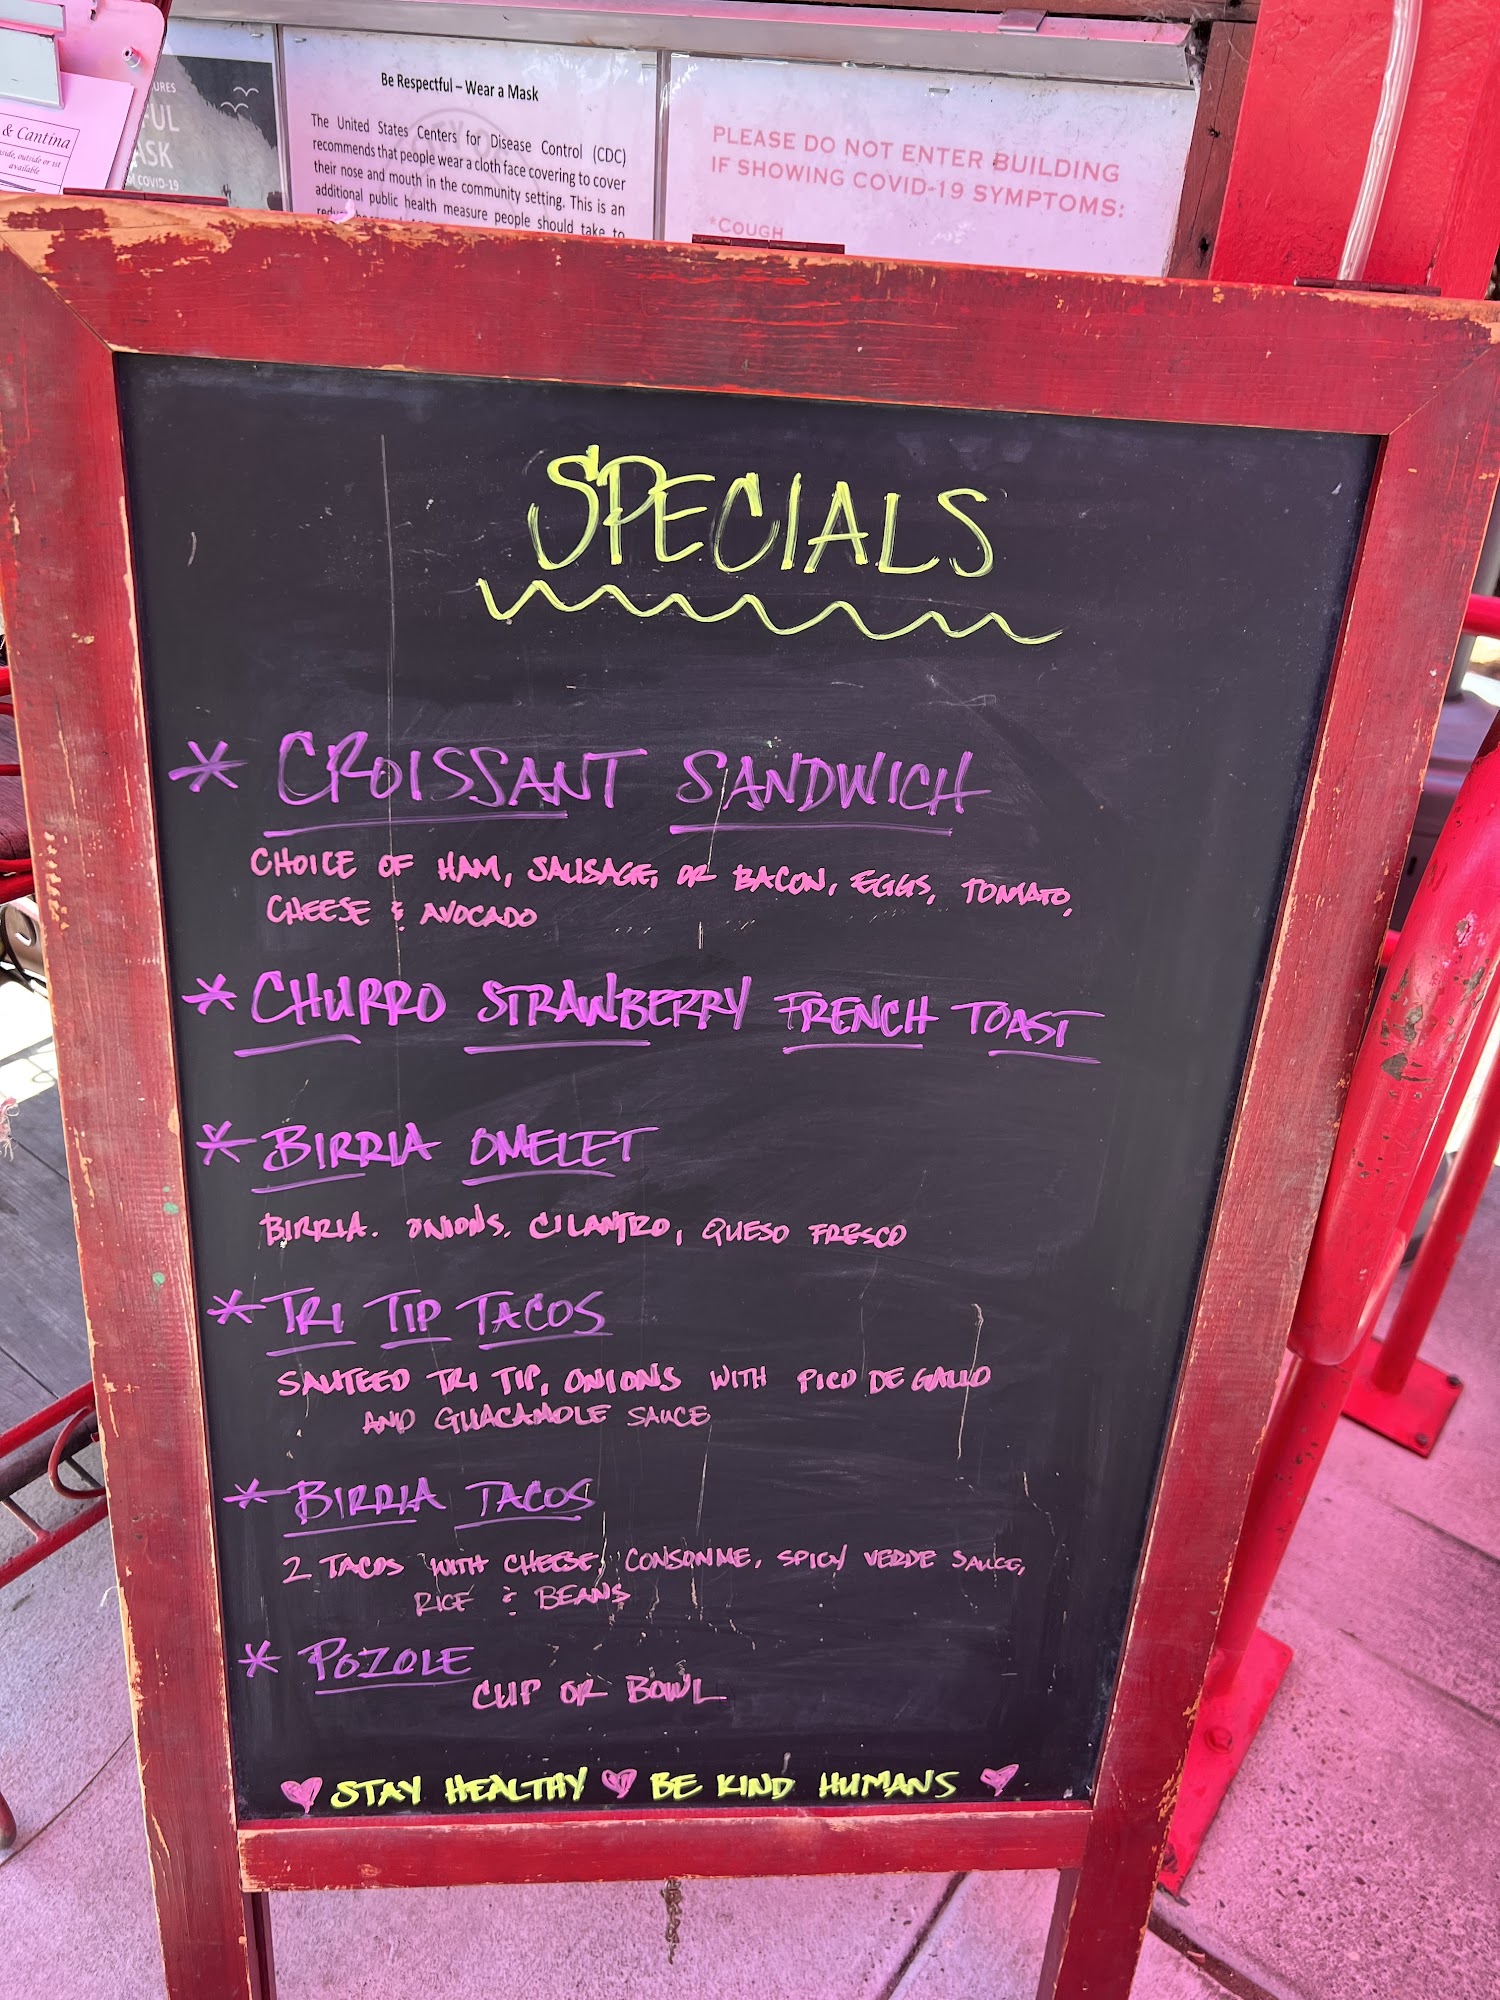 URES
FUL
ASK
COVID-19
& Cantina
inside, outside or sit
available
Be Respectful – Wear a Mask
The United States Centers for Disease Control (CDC)
recommends that people wear a cloth face covering to cover
their nose and mouth in the community setting. This is an
additional public health measure people should take to
PLEASE DO NOT ENTER BUILDING
IF SHOWING COVID-19 SYMPTOMS:
*COUGH
SPECIALS
* CROISSANT SANDWICH
CHOICE OF HAM, SAUSAGE, OR BACON, EGGS, TOMATO,
CHEESE & AVOCADO
* CHURRO STRAWBERRY FRENCH TOAST
* BIRRIA OMELET
BIRRIA. ONIONS. CILANTRO, QUESO FRESCO
* TRI TIP TACOS
SAUTEED TRI TIP, ONIONS WITH PICO DE GALLO
AND GUACAMOLE SAUCE
* BIRRIA TACOS
2 TACOS WITH CHEESE, CONSOMME, SPICY VERDE SAUCE,
RICE & BEANS
* POZOLE
CUP OR BOWL
♥ STAY HEALTHY ♥ BE KIND HUMANS ♥